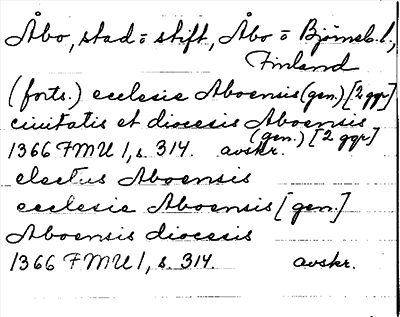 Åbo, stad = stift, Åbo = Björneb. l.,
Finland
(forts.) ecclesie Aboensis (gen.) [2 ggr]
ciuitatis et diocesis Aboensis
(gen.) [2 ggr]
1366 FMU 1, s. 314. avskr.
electus Aboensis
ecclesie Aboensis [gen.]
Aboensis diocesis
1366 FMU 1, s. 314. avskr.